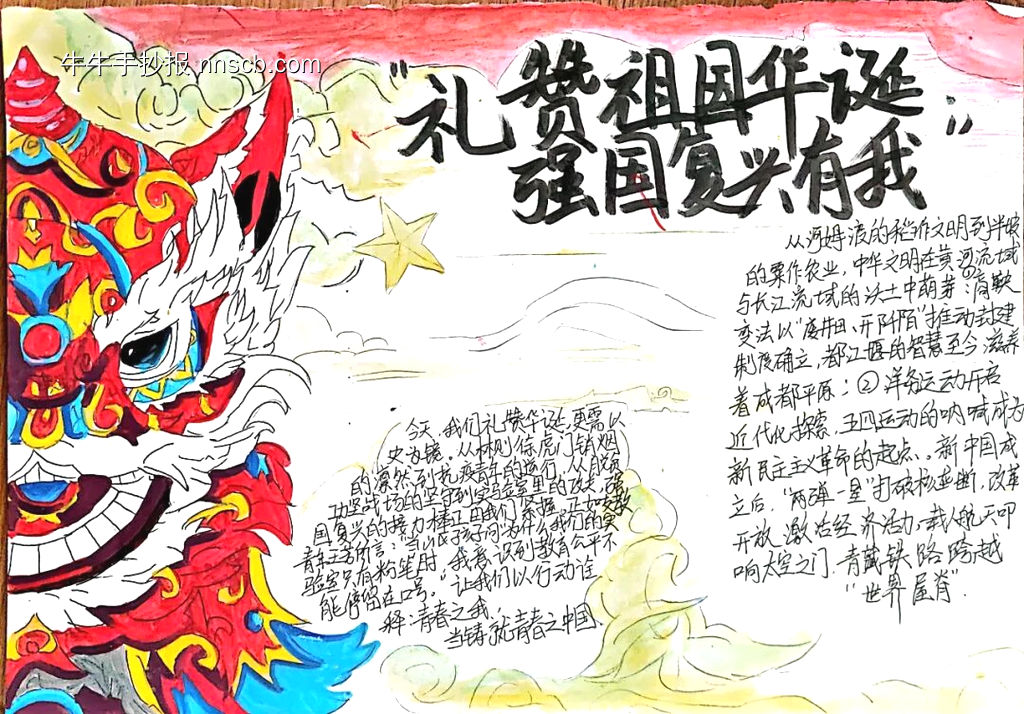 牛牛手抄报 nnscb.com
"礼赞祖国华诞
强国复兴有我"
从河姆渡的稻作文明到半坡
的粟作农业,中华文明在黄河流域
与长江流域的沃土中萌芽:商鞅
变法以"废井田、开阡陌"推动封建
制度确立,都江堰的智慧至今滋养
着成都平原:②洋务运动开启
近代化探索,五四运动的呐喊成为
新民主主义革命的起点、新中国成
立后,"两弹一星"打破核垄断,改革
开放激活经济活力,载人航天叩
响太空之门,青藏铁路跨越
"世界屋脊".
今天,我们礼赞华诞,更需以
史为镜。从林则徐虎门销烟
的凛然到抗疫青年的逆行,从
坚战场的坚守到实验室里的攻关,强
国复兴的接力棒正由我们紧握。正如支教
青年王芳所言:"当山孩子问为什么我们的实
验室只有粉笔时,我意识到教育公平不
能停留在口号。"让我们以行动诠
释:青春之我,
当铸就青春之中国.